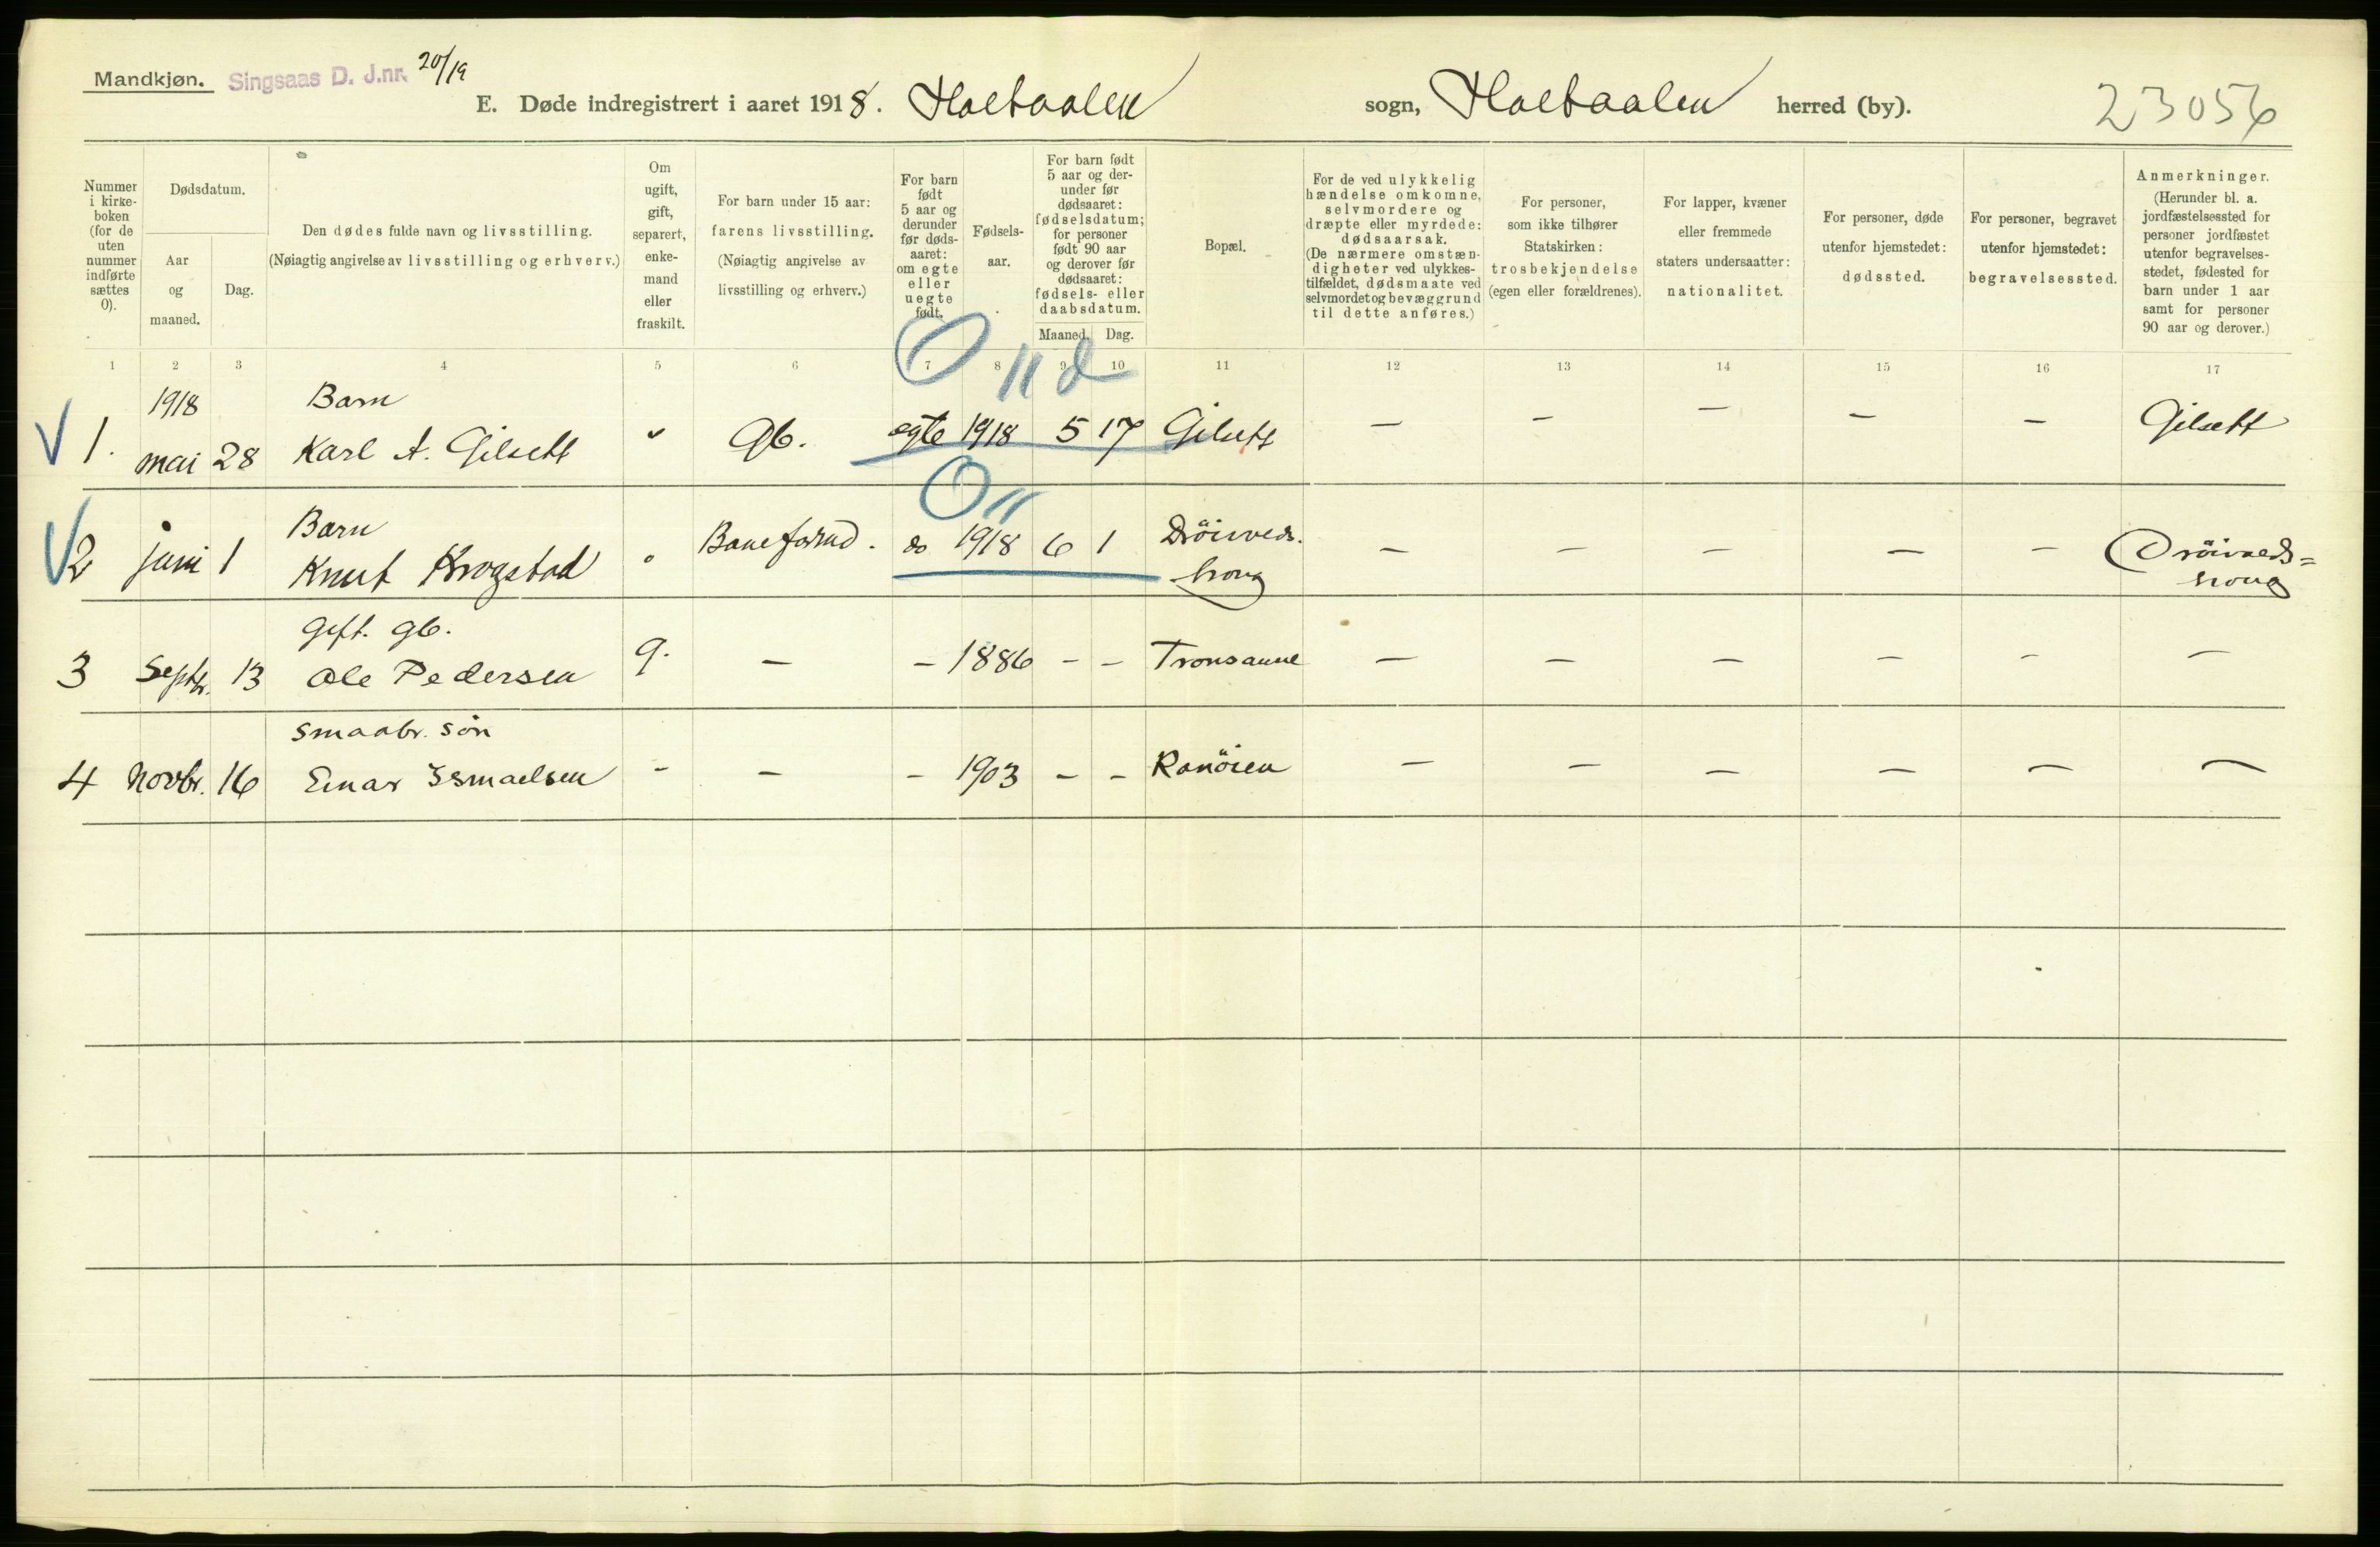 Mandkjøn. Singsaas D. J.nr. 20/19
E. Døde indregistrert i aaret 1918. Holtaalen sogn, Holtaalen herred (by). 23056
Nummer i kirke-boken (for de uten nummer indførte sættes 0).
Dødsdatum.
Aar og maaned.
Dag.
Den dødes fulde navn og livsstilling.
(Nøiagtig angivelse av livsstilling og erhverv.)
Om ugift, gift, separert, enke-mand eller fraskilt.
For barn under 15 aar: farens livsstilling.
(Nøiagtig angivelse av livsstilling og erhverv.)
For barn født 5 aar og derunder før døds-aaret: om egte eller uegte født.
Fødsels-aar.
For barn født 5 aar og der-under før dødsaaret: fødselsdatum; for personer født 90 aar og derover før dødsaaret: fødsels- eller daabsdatum.
Maaned. Dag.
Bopæl.
For de ved ulykkelig hændelse omkomne, selvmordere og dræpte eller myrdede: dødsaarsak.
(De nærmere omstæn-digheter ved ulykkes-tilfældet, dødsmaate ved selvmordet og bevæggrund til dette anføres.)
For personer, som ikke tilhører Statskirken: trosbekjendelse (egen eller forældrenes).
For lapper, kvæner eller fremmede staters undersaatter: nationalitet.
For personer, døde utenfor hjemstedet: dødssted.
For personer, begravet utenfor hjemstedet: begravelsessted.
Anmerkninger.
(Herunder bl. a. jordfæstelsessted for personer jordfæstet utenfor begravelses-stedet, fødested for barn under 1 aar samt for personer 90 aar og derover.)
1 2 3 4 5 6 7 8 9 10 11 12 13 14 15 16 17
1918 Barn
1. mai 28 Karl A. Gilsett " Gb. egte 1918 5 17 Gilsett — — — — — Gilsett
Barn
2 juni 1 Knut Krogstad " Baneformd. do 1918 6 1 Dröivedshong — — — — — Dröivedshong
Gift. gb.
3 Septbr. 13 Ole Pedersen g. — — 1886 – – Tronsaune — — — — — —
Smaabr. søn
4 Novbr. 16 Einar Ismaelsen – — – 1903 – – Ranöien — — — — — —